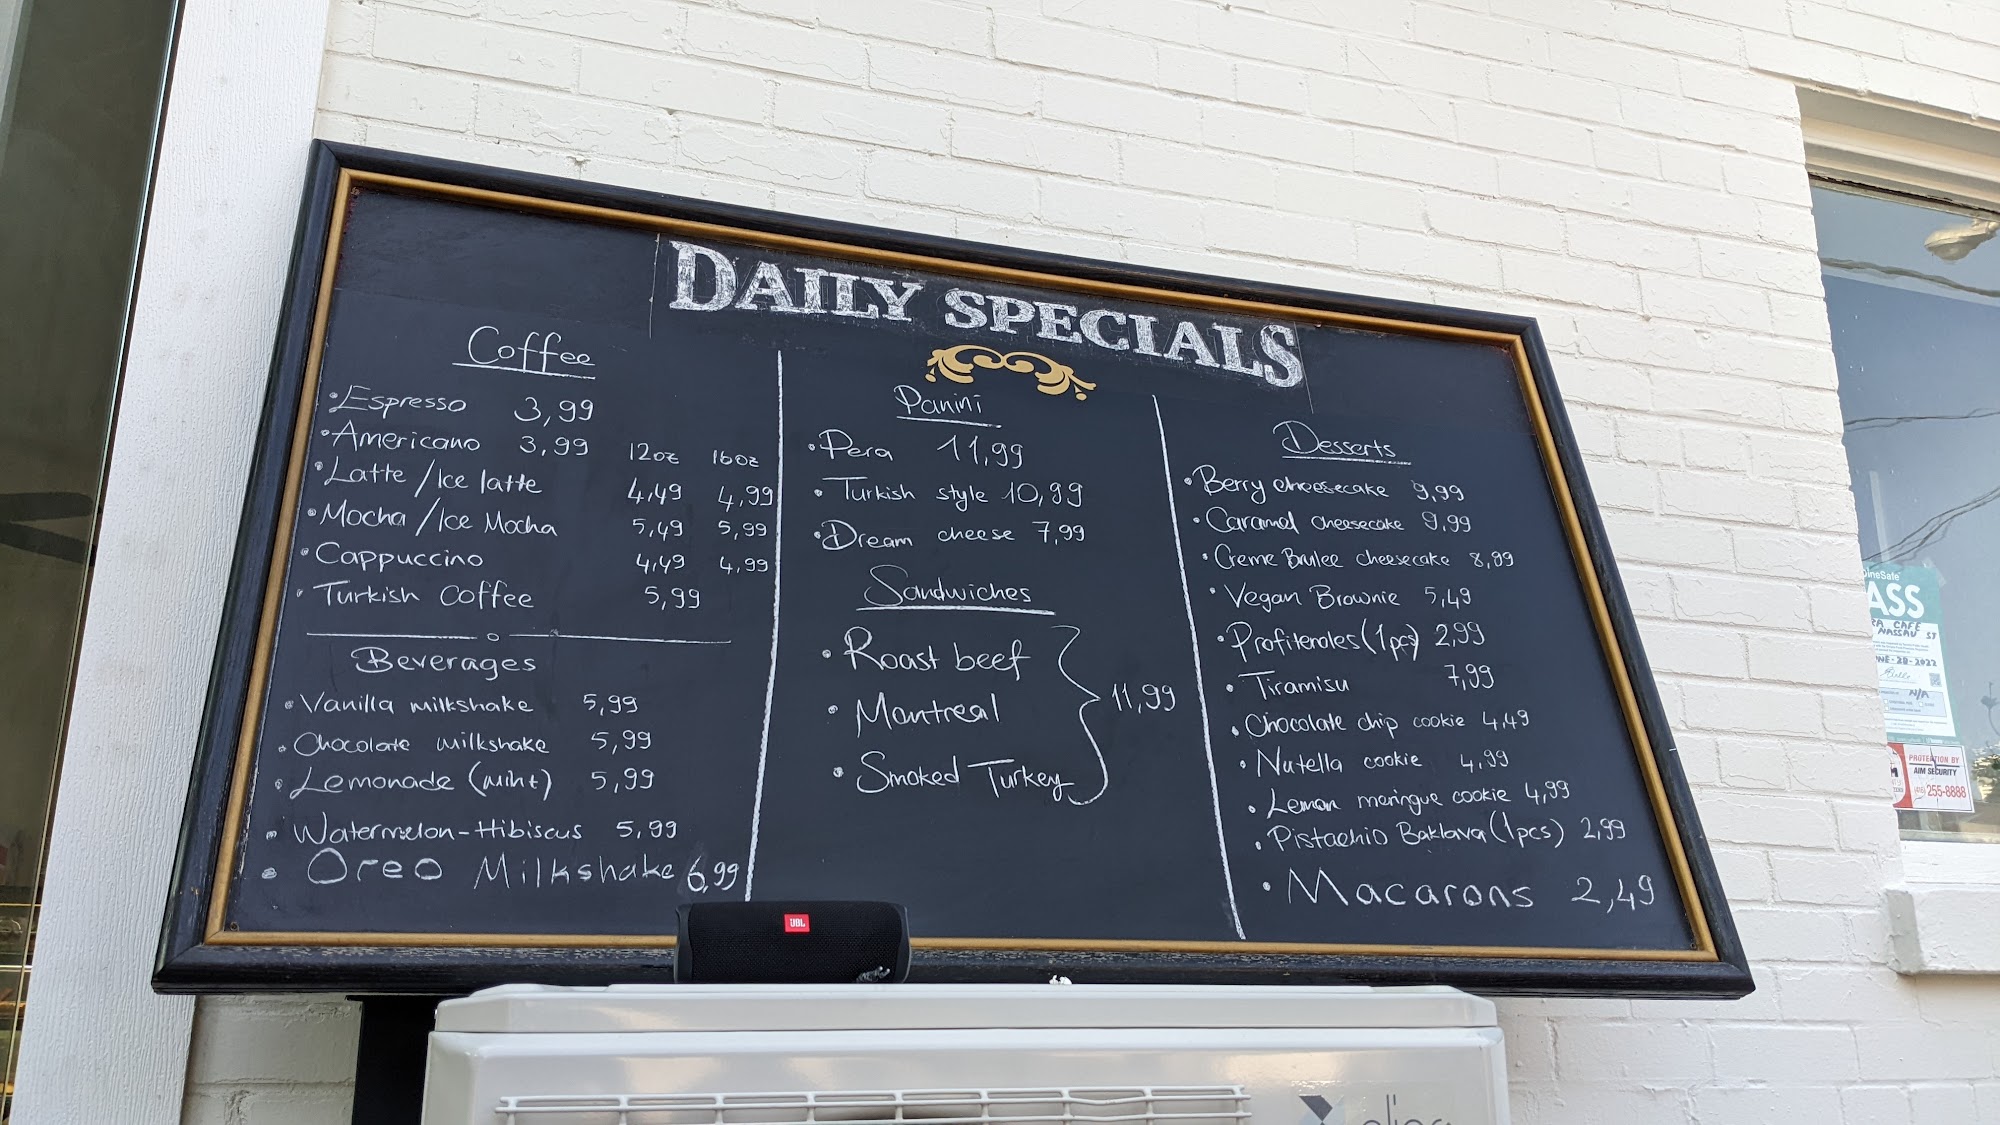 DAILY SPECIALS
Coffee
•Espresso 3,99
•Americano 3,99 12oz 16oz
•Latte/Ice latte 4,49 4,99
•Mocha/Ice Mocha 5,49 5,99
•Cappuccino 4,49 4,99
•Turkish Coffee 5,99
Beverages
•Vanilla milkshake 5,99
•Chocolate milkshake 5,99
•Lemonade (mint) 5,99
•Watermelon-Hibiscus 5,99
•Oreo Milkshake 6,99
Panini
•Pera 11,99
•Turkish style 10,99
•Dream cheese 7,99
Sandwiches
•Roast beef
•Montreal 11,99
•Smoked Turkey
Desserts
•Berry cheesecake 9,99
•Caramel cheesecake 9,99
•Creme Brulee cheesecake 8,99
•Vegan Brownie 5,49
•Profiteroles(1pcs) 2,99
•Tiramisu 7,99
•Chocolate chip cookie 4,49
•Nutella cookie 4,99
•Lemon meringue cookie 4,99
•Pistachio Baklava(1pcs) 2,99
•Macarons 2,49
JBL
DineSafe
ASS
CAFE
NASSAU ST
NE-28-2022
N/A
PROTECTION BY
AIM SECURITY
255-8888